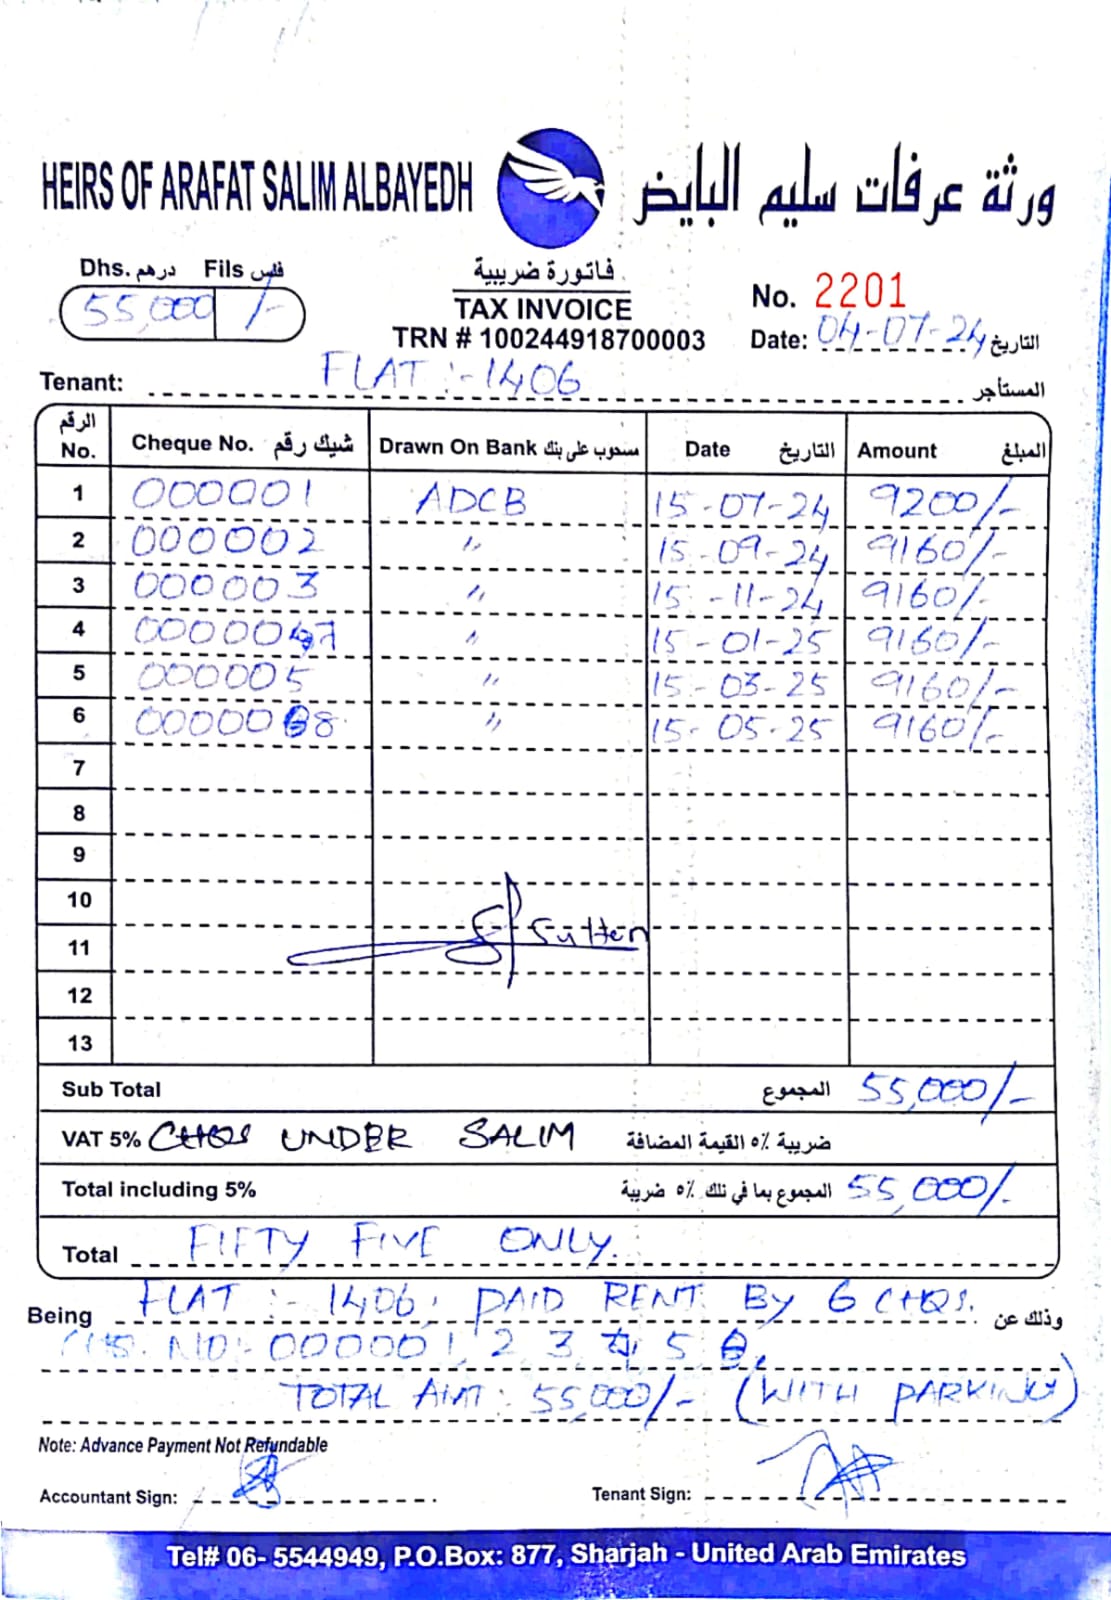 HEIRS OF ARAFAT SALIM ALBAYEDH ورثة عرفات سليم البايض
Dhs. درهم Fils فلس
55,000 /-
فاتورة ضريبية
TAX INVOICE
TRN # 100244918700003
No. 2201
Date: 04-07-24 التاريخ
Tenant: FLAT :- 1406 المستأجر
الرقم No. Cheque No. شيك رقم Drawn On Bank مسحوب على بنك Date التاريخ Amount المبلغ
1 000001 ADCB 15-07-24 9200/-
2 000002 " 15-09-24 9160/-
3 000003 " 15-11-24 9160/-
4 000007 " 15-01-25 9160/-
5 000005 " 15-03-25 9160/-
6 000008 " 15-05-25 9160/-
7
8
9
10
11
12
13
Sultan
Sub Total المجموع 55,000/-
VAT 5% CHQS UNDER SALIM ضريبة ٥٪ القيمة المضافة
Total including 5% المجموع بما في ذلك ٥٪ ضريبة 55,000/-
Total FIFTY FIVE ONLY.
Being FLAT :- 1406, PAID RENT BY 6 CHQS. وذلك عن
CHS. NO:- 000001, 2 3 5
TOTAL AMT : 55,000/- (WITH PARKING)
Note: Advance Payment Not Refundable
Accountant Sign: Tenant Sign:
Tel# 06- 5544949, P.O.Box: 877, Sharjah - United Arab Emirates